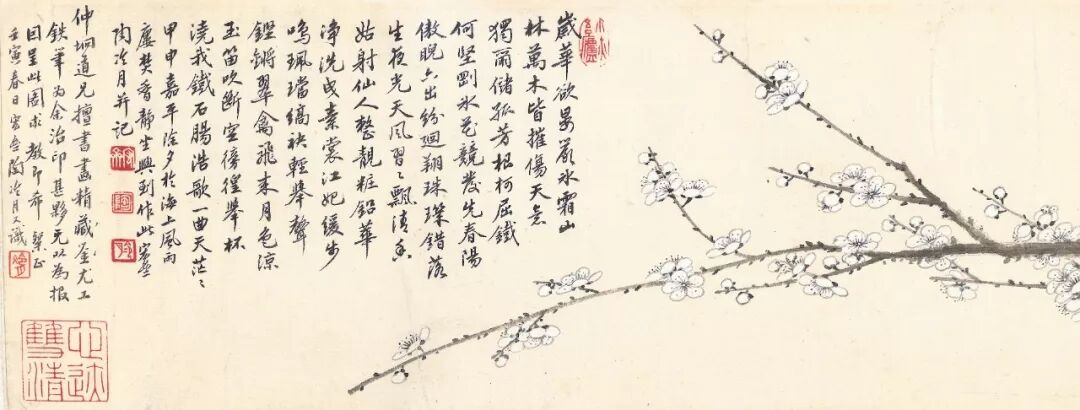 歲華欲晏嚴冰霜山
林萬木皆摧傷天意
獨爾儲孤芳根柯屈鐵
何堅剛冰花競發先春陽
傲睨六出紛迴翔珠璨錯落
生夜光天風習〻飄清香
姑射仙人整靚粧鉛華
淨洗曳素裳江妃緩步
鳴珮璫縞袂輕舉聲
鏗鏘翠禽飛來月色涼
玉笛吹斷空徬徨舉杯
澆我鐵石腸浩歌一曲天茫〻
甲申嘉平除夕於海上風雨
廔焚香靜坐興到作此
陶冷月并記
仲坰道兄擅書畫精藏鉴尤工
鉄筆为余治印甚夥无以为報
因呈此圖求教即希 粲正
壬寅春日陶冷月又識
心迹雙清